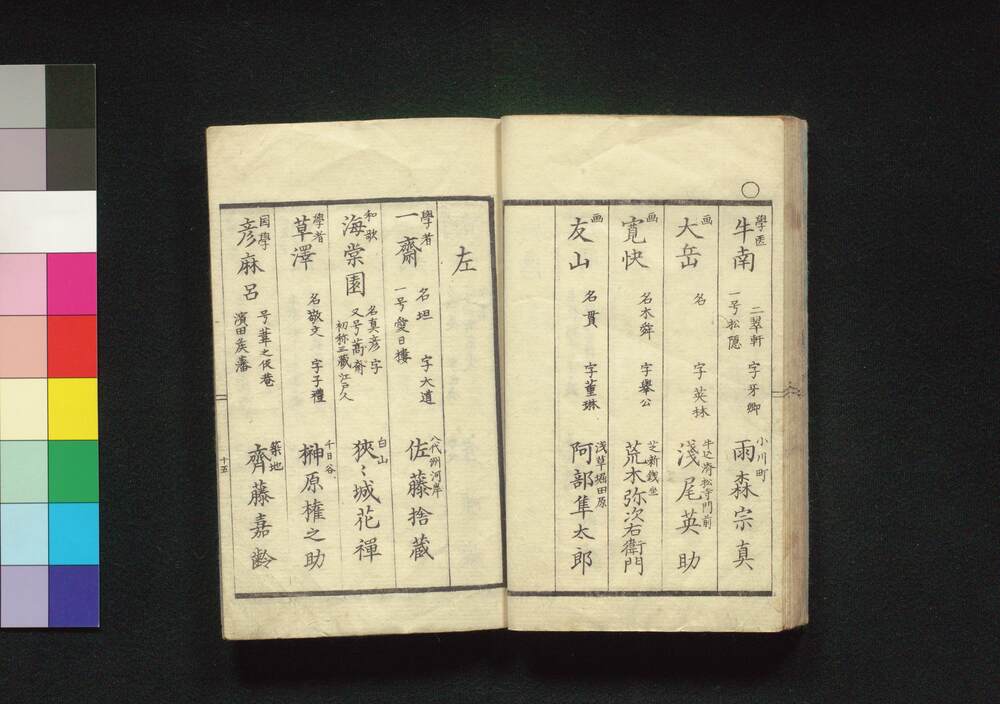 ○
學医
牛南
二翠軒
一号松隠
字牙卿
小川町
雨森宗真
画
大岳
名
字英林
牛込済松寺門前
淺尾英助
画
寛快
名木舜
字擧公
芝新銭坐
荒木弥次右衛門
画
友山
名貫
字董琳
浅草堀田原
阿部隼太郎
左
學者
一齋
名坦
一号愛日樓
字大道
八代洲河岸
佐藤捨藏
和歌
海棠園
名真彦 字
又号蒿齋
初称三藏江戸人
白山
狹々城花禪
學者
草澤
名敬文
字子禮
千日谷
榊原権之助
国學
彦麻呂
号葦之仮巷
濱田矦藩
築地
齊藤嘉齡
十五